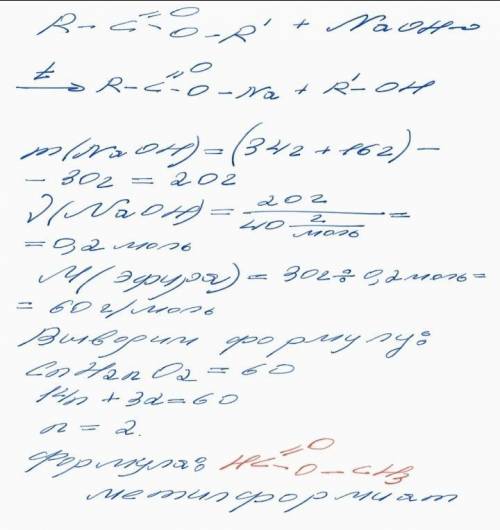 R-C(=O)-O-R' + NaOH→
t→ R-C(=O)-O-Na + R'-OH
m(NaOH) = (34г + 16г) -
- 30г = 20г
ν(NaOH) = 20г / 40 г/моль =
= 0,2 моль
M(эфира) = 30г ÷ 0,2моль =
= 60 г/моль
Выводим формулу:
CnH2nO2 = 60
14n + 32 = 60
n = 2.
Формула: HC(=O)-O-CH3
метилформиат